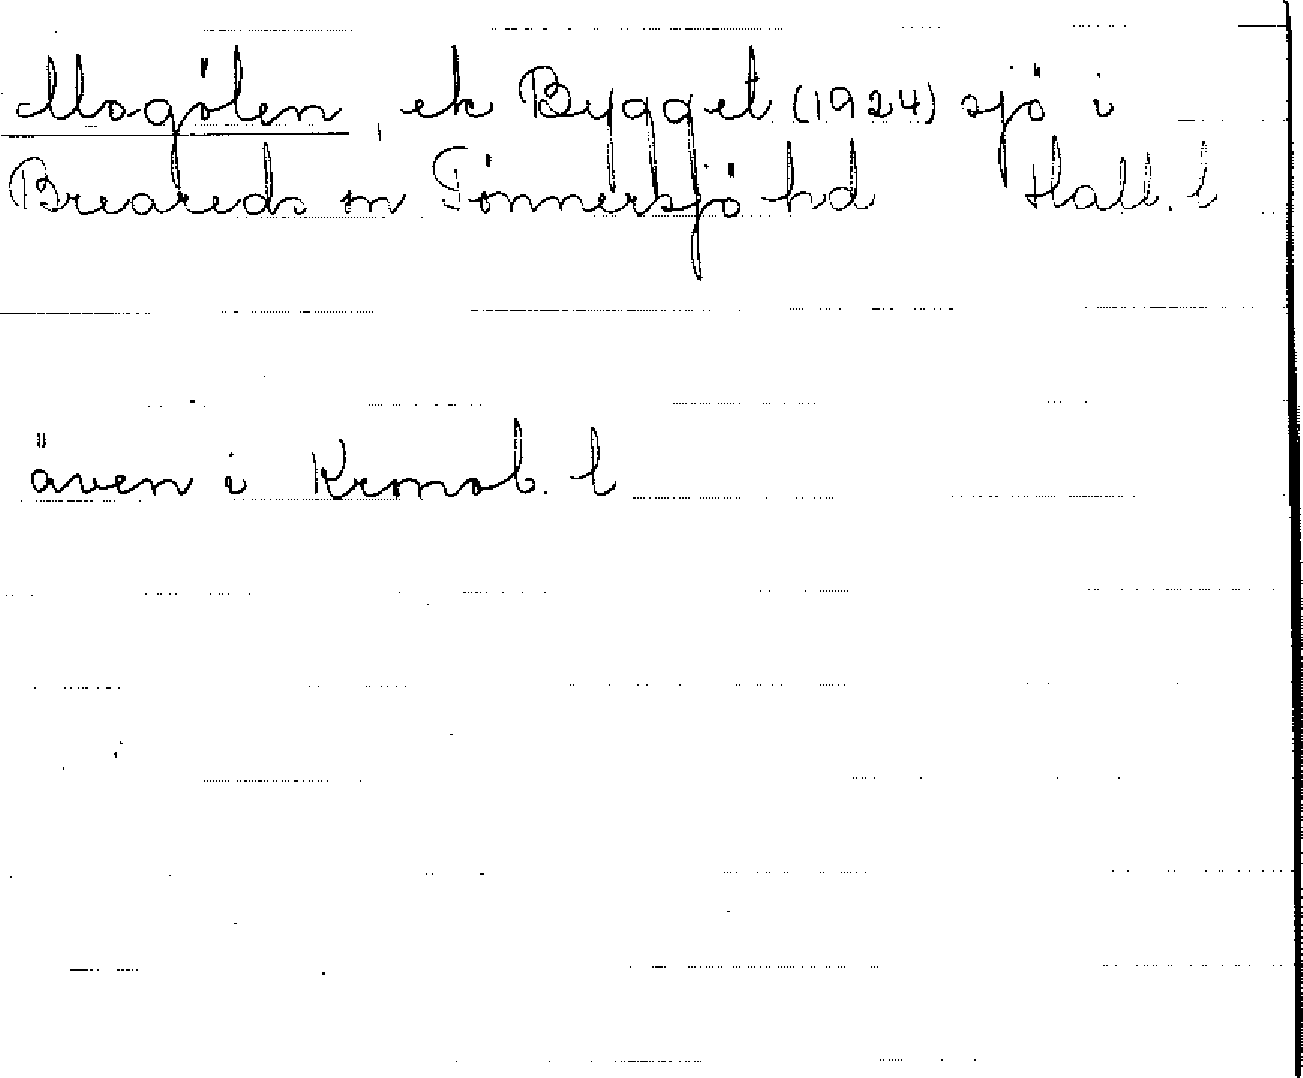 Mogölen, ek Bygget (1924) sjö i
Breareds sn Tönnersjö hd Hall. l
även i Kronob. l